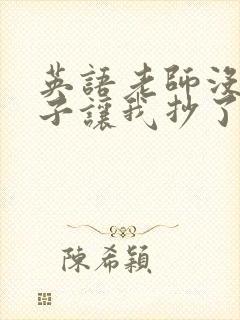 英語老師沒
子讓我抄了
陳希穎